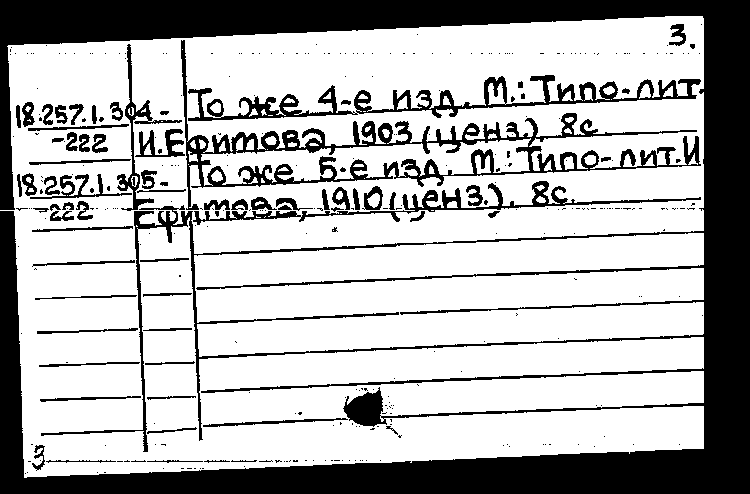 3.
18.257.1.304- То же. 4-е изд. М.: Типо-лит.
-222 И.Ефимова, 1903 (ценз.). 8с.
18.257.1.305- То же. 5-е изд. М.: Типо-лит.И.
-222 Ефимова, 1910 (ценз.). 8с.
3